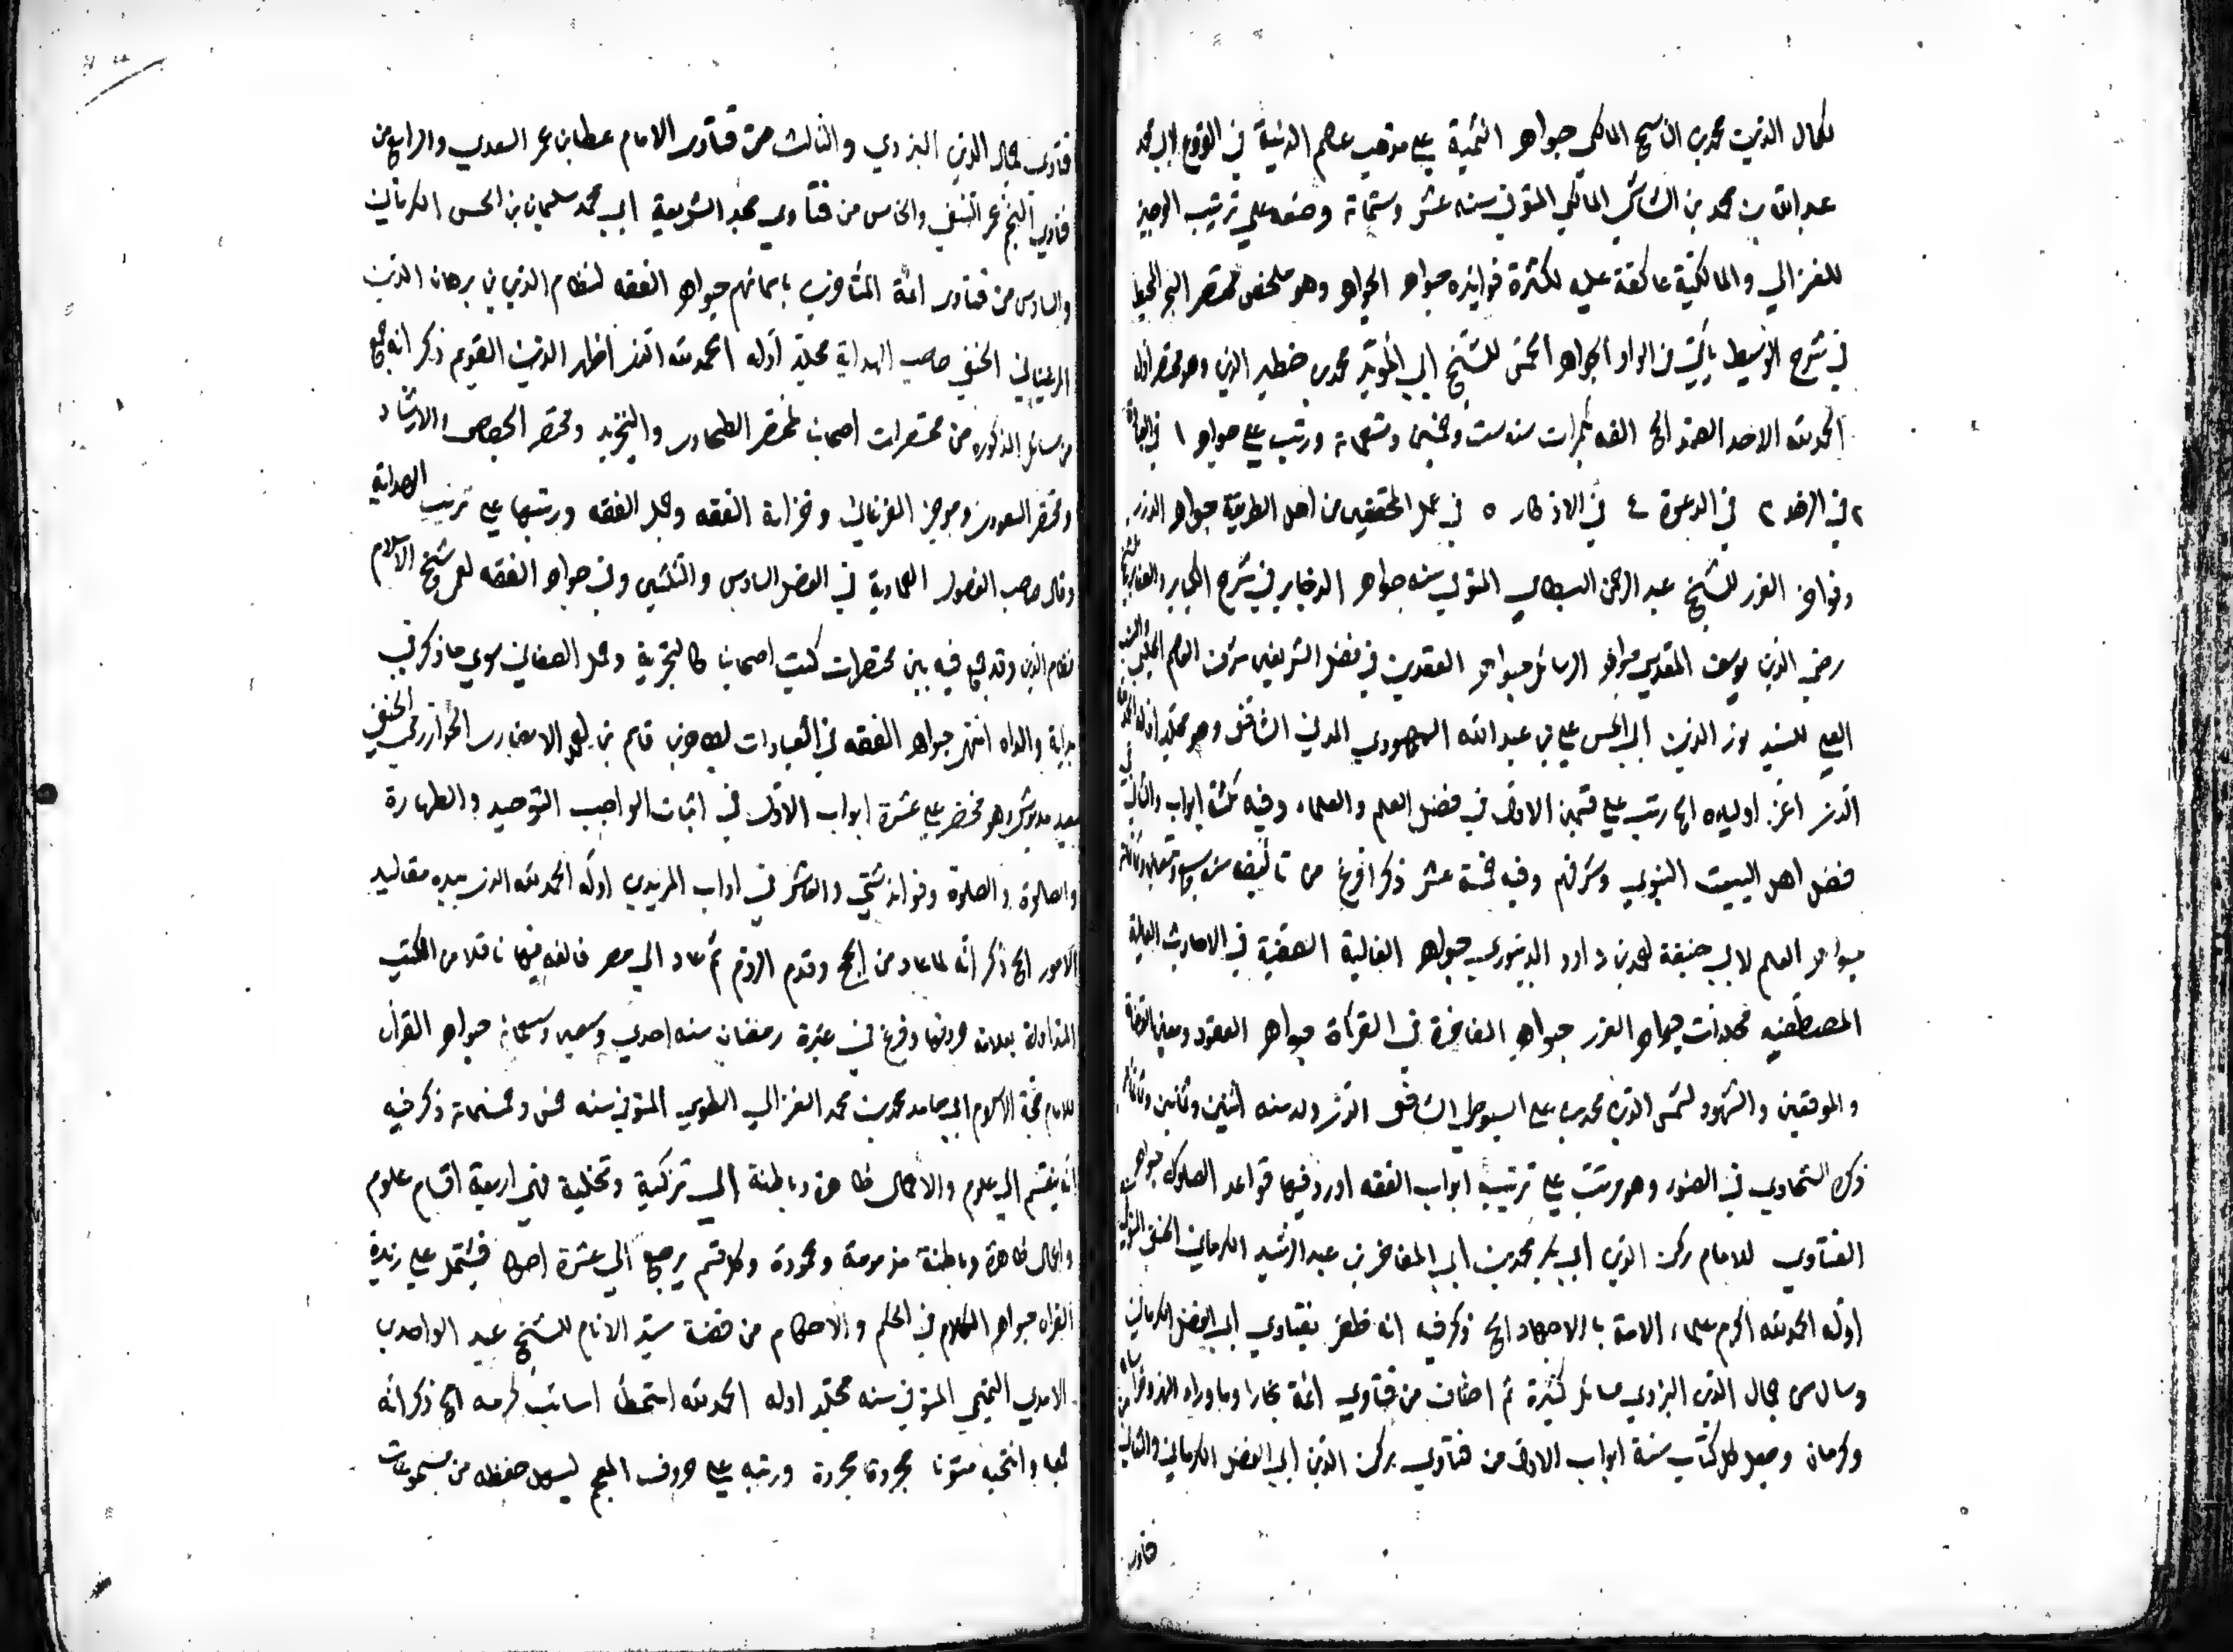 لكمال الدين محمد بن الناسخ المالكي جواهر الثمينة على مذهب عالم المدينة في الفروع لابي محمد
عبد الله بن محمد بن الشاس المالكي المتوفى سنه عشر وستمائة وضعه على ترتيب الوجيز
للغزالي والمالكية عاكفة عليه لكثرة فوائده جواهر الجواهر وهو ملخص مختصر البحر المحيط
في شرح الوسيط ياتي في الواو الجواهر الخمس للشيخ ابي المؤيد محمد بن خطير الدين وهو مختصر اوله
الحمد لله الاحد الصمد الخ الفه بكجرات سنه ست وخمسين وتسعمائة ورتب على جواهر ١ في العبادة
٢ في الزهد ٣ في الدعوة ٤ في الاذكار ٥ في عمل المحققين من اهل الطريقة جواهر الدرر
وفواخر الغرر للشيخ عبد الرحمن البسطامي المتوفى سنه جواهر الذخاير في شرح الكباير والصغاير للشيخ
رضي الدين يوسف المقدسي جواهر الرسائل جواهر العقدين في فضل الشرفين شرف العلم الجلي والنسب
العلي للسيد نور الدين ابي الحسن علي بن عبد الله السمهودي المدني الشافعي وهو مجلد اوله الحمد لله
الذي اعز اولياءه الخ رتب على قسمين الاول في فضل العلم والعلماء وفيه ثلثة ابواب والثاني في
فضل اهل البيت النبوي وشرفهم وفيه خمسة عشر ذكرا فرغ من تأليفه سنه سبع وتسعين وثمانمائة
جواهر العلم لابي حنيفة احمد بن داود الدينوري جواهر الغالية الصفية في الاحاديث العالية
المصطفيه مجلدات جواهر الغرر جواهر الفاخرة في القراة جواهر العقود ومعين القضاة
والموقعين والشهود لشمس الدين محمد بن علي السيوطي الشافعي الذي ولد سنه اثنين وثمانين وثمانمائة
ذكره السخاوي في الضوء وهو مرتب على ترتيب ابواب الفقه اورد فيها قواعد الصكوك جواهر
الفتاوي للامام ركن الدين ابي بكر محمد بن ابي المفاخر بن عبد الرشيد الكرماني الحنفي المتوفى
اوله الحمد لله اكرم علماء الامة بالاجتهاد الخ ذكر فيه انه ظفر بفتاوي ابي الفضل الكرماني
وسال من جمال الدين البزدوي مسائل كثيرة ثم اضاف من فتاوي ائمة بخارا وما وراء النهر وخراسان
وكرمان وجعل كل كتاب ستة ابواب الاول من فتاوي ركن الدين ابي الفضل الكرماني والثاني من
فتاوي
فتاوي جمال الدين البزدوي والثالث من فتاوى الامام عطا بن عمر السعدي والرابع من
فتاوي النجم عمر النسفي والخامس من فتاوي مجد الشريعة ابي محمد سليمان بن الحسن الكرماني
والسادس من فتاوى ائمة المتأخرين باسمائهم جواهر الفقه لنظام الدين بن برهان الدين
المرغيناني الحنفي صاحب الهداية مجلد اوله الحمد لله الذي اظهر الدين القويم ذكر انه جمع
من مسائل المذكورة من مختصرات اصحابنا كمختصر الطحاوي والتجريد ومختصر الجصاص والارشاد
ومختصر المسعودي وموجز الفرغاني وخزانة الفقه وجمل الفقه ورتبها على ترتيب الهداية
وقال صاحب الفصول العمادية في الفصل السادس والثلثين وفي جواهر الفقه لعمي شيخ الاسلام
نظام الدين وقد جمع فيه بين مختصرات كتب اصحابنا كالتجريد وجمل الصغاني سوى ما ذكر في
بداية والداه انتهى جواهر الفقه في العبادات لطاهر بن قاسم بن احمد الانصاري الخوارزمي الحنفي
بسعيد مدبوش وهو مختصر على عشرة ابواب الاول في اثبات الواجب التوحيد والطهارة
والصلوة وفوائد شتى والعاشر في اداب المريدي اوله الحمد لله الذي بيده مقاليد
الامور الخ ذكر انه لما عاد من الحج وقدم الروم ثم عاد الى مصر فالفه فيها ناقلا من الكتب
المتداولة بعلامة حروفها وفرغ في غرة رمضان سنه احدى وسبعين وسبعمائة جواهر القرآن
للامام حجة الاسلام ابي حامد محمد بن محمد الغزالي الطوسي المتوفى سنه خمس وخمسمائة ذكر فيه
انه ينقسم الى علوم والاعمال ظاهرة وباطنة الى تزكية وتخلية فهي اربعة اقسام علوم
واعمال ظاهرة وباطنة مذمومة ومحمودة وكل قسم يرجع الى عشرة اصول فيشتمل على زبدة
القران جواهر الكلام في الحكم والاحكام من قصة سيد الانام للشيخ عبد الواحد بن
الامدي التميمي المتوفى سنه مجلد اوله الحمد لله استحطا اسائب كرمه الخ ذكر انه
جمعها وانتخبه متونا مجردة ورتبه على حروف المعجم ليسهل حفظه من مسموعات